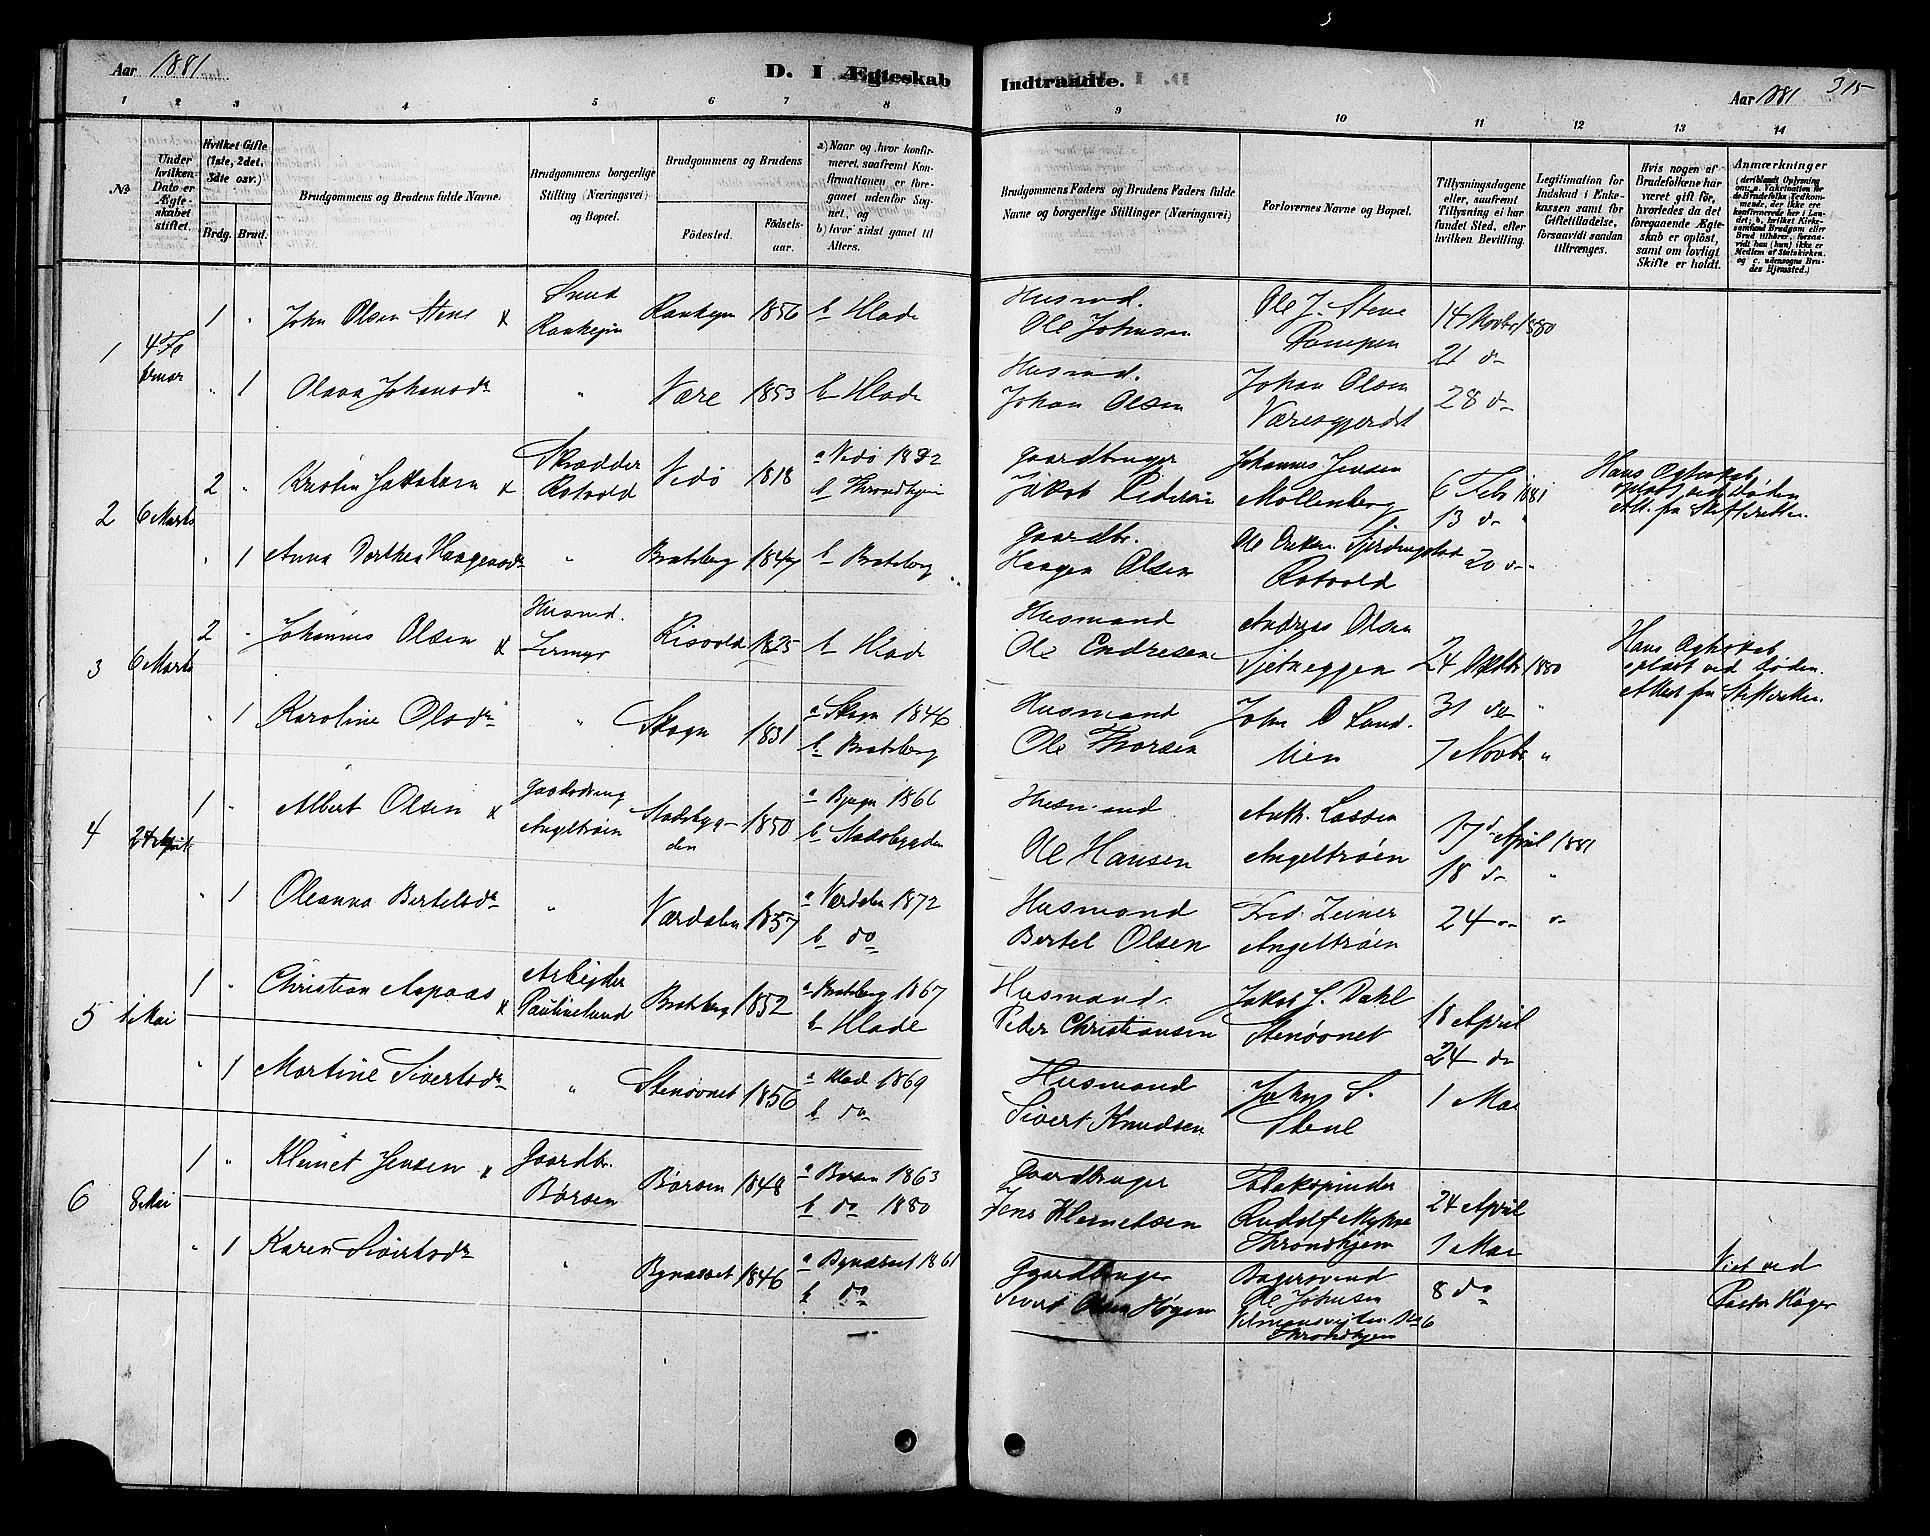 Aar 1881
D. I Ægteskab
1 2 3 4 5 6 7 8
No
Under hvilken Dato er Ægteskabet stiftet.
Hvilket Gifte (1ste, 2det, 3die osv.)
Brdg. Brud.
Brudgommens og Brudens fulde Navne.
Brudgommens borgerlige Stilling (Næringsvei) og Bopæl.
Brudgommens og Brudens
Födested.
Födselsaar.
a) Naar og hvor konfirmeret, saafremt Konfirmationen er foregaaet udenfor Sognet, og
b) hvor sidst gaaet til Alters.
1
4 Februar
1 " John Olsen Stene
Smed
Rankejen
1856
b Hlade
" 1 Olava Johansdr
"
Være 1853 b Hlade
2 6 Marts
2 "
Skrædder
Rotvold
1818
b Throndhjem
" 1 Anna Dorthea Haagensdr
"
Bratsberg 1847 b Bratsberg
3 6 Marts
2 " Johannes Olsen
Husmd.
1825 b Hlade
" 1 Karoline Olsdr
"
Skogn 1831
a Skogn 1846
b Bratsberg
4 24 April
1 " Albert Olsen
Angeltrøen
Stadsbygden
1850
a Bjugn 1866
b Stadsbygden
" 1 Oleanna Bertelsdr
"
Værdalen 1857
a Værdalen 1872
b do
5 1 Mai
1 " Christian Aspaas
Arbejder
Paulinelund
Bratsberg 1852
a Bratsberg 1867
b Hlade
" 1 Martine Sivertsdr
"
Stenøvnet 1856
a Hlad 1869
b do
6 8 Mai
1 " Klemet Jensen
Gaardbr.
Børsen
Børsen 1848
a Børsen 1863
b do 1880
" 1 Karen Sivertsdr
"
Bynæsset 1846
a Bynæsset 1861
b do
Indtraadte.
Aar 1881
315
9 10 11 12 13 14
Brudgommens Faders og Brudens Faders fulde Navne og borgerlige Stillinger (Næringsvei)
Forlovernes Navne og Bopæl.
Tillysningsdagene eller, saafremt Tillysning ei har fundet Sted, efter hvilken Bevilling.
Legitimation for Indskud i Enkekassen samt for Giftetilladelse, forsaavidt saadan tiltrænges.
Hvis nogen af Brudefolkene har været gift för, hvorledes da det foregaaende Ægteskab er oplöst, samt om lovligt Skifte er holdt.
Anmærkninger
Husmd.
Ole Johnsen
Ole J. Stene
14 Novbr 1880
21 do
Husmd.
Johan Olsen
Johan Olsen
Væresgjerdet
28 do
Gaardbruger
Jakob Pedersen
Johannes Jensen
Mollenberg
6 Febr 1881
13 do "
Hans Ægteskab
opløst ved Døden
Att. fra Skifteretten.
Gaardbr.
Haagen Olsen
Rotvold
20 do "
Husmand
Ole Endresen
Andreas Olsen
Sjetneggen
24 Oktbr 1880
Hans Ægteskab
opløst ved Døden.
Attest fra Skifteretten.
Husmand
Ole Thorsen
31 do "
7 Novbr "
Husmand
Ole Hansen
Anth. Lassen
Angeltrøen
17de April 1881
18 do "
Husmand
Bertel Olsen
Fred. Zeiner
Angeltrøen
24 do do
Husmand
Peder Christiansen
Jakob S. Dahl
Stenøvnet
18 April
24 do
Husmand
Sivert Knudsen
John S.
Stene
1 Mai
Gaardbruger
Jens Klemetsen
Rudolf
Throndhjem
24 April
1 Mai
Gaardbruger
Sivert Olsen Høgen
Bagersvend
Ole Johnsen
No 6
Throndhjem
8 do
Viet ved
Pastor Høyer